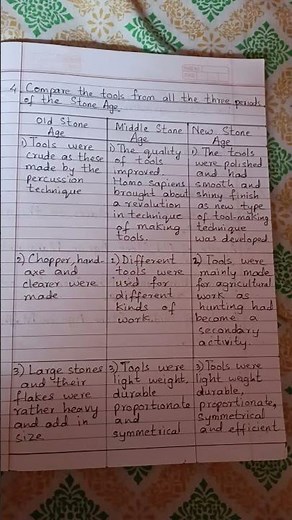 4. Compare the tools from all the three periods
of the Stone Age.
Old Stone
Age
1) Tools were
crude as these
made by the
percussion
technique
Middle Stone
Age
1) The quality
of tools
improved.
Homo sapiens
brought about
a revolution
in technique
of making
tools.
New Stone
Age
1) The tools
were polished
and had
smooth and
shiny finish
as new type
of tool-making
technique
was developed.
2) Chopper, hand-
axe and
clearer were
made
1) Different
tools were
used for
different
kinds of
work.
2) Tools were
mainly made
for agricultural
work as
hunting had
become a
secondary
activity.
3) Large stones
and their
flakes were
rather heavy
and add in
size
3) Tools were
light weight,
durable
proportionate
and
symmetrical
3) Tools were
light weght
durable,
proportionate,
symmetrical
and efficient